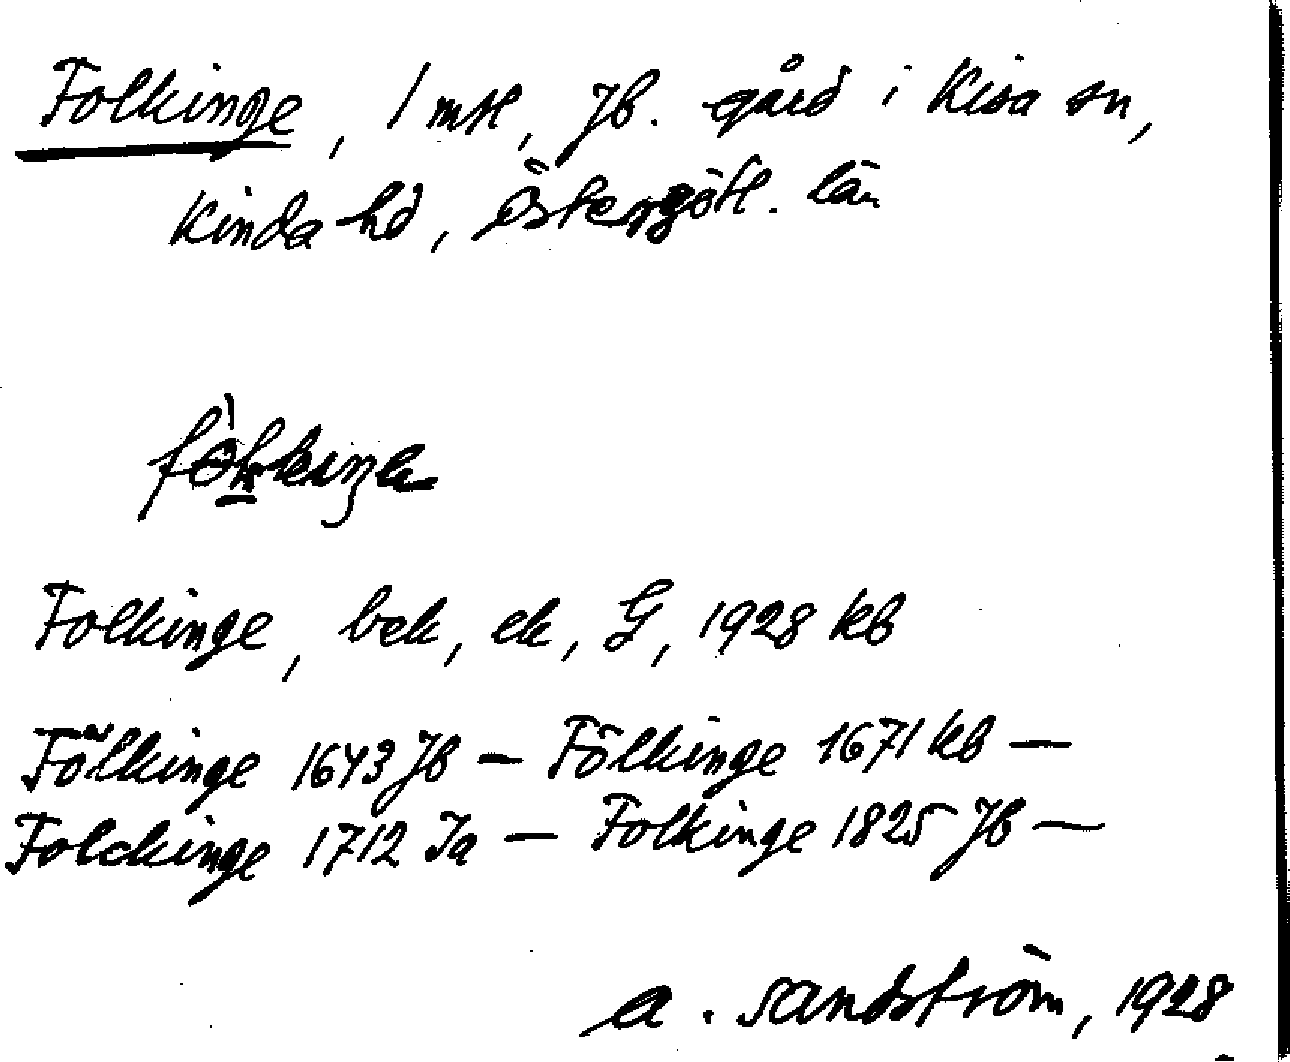 Folkinge, 1 mtl, Jb. gård i Kisa sn,
Kinda hd, Östergötl. län
Folkinge, bek, ek, G, 1928 kb
Fölkinge 1643 Jb — Fölkinge 1671 kb —
Folckinge 1712 Ja — Folkinge 1825 Jb —
A. Sandström, 1928